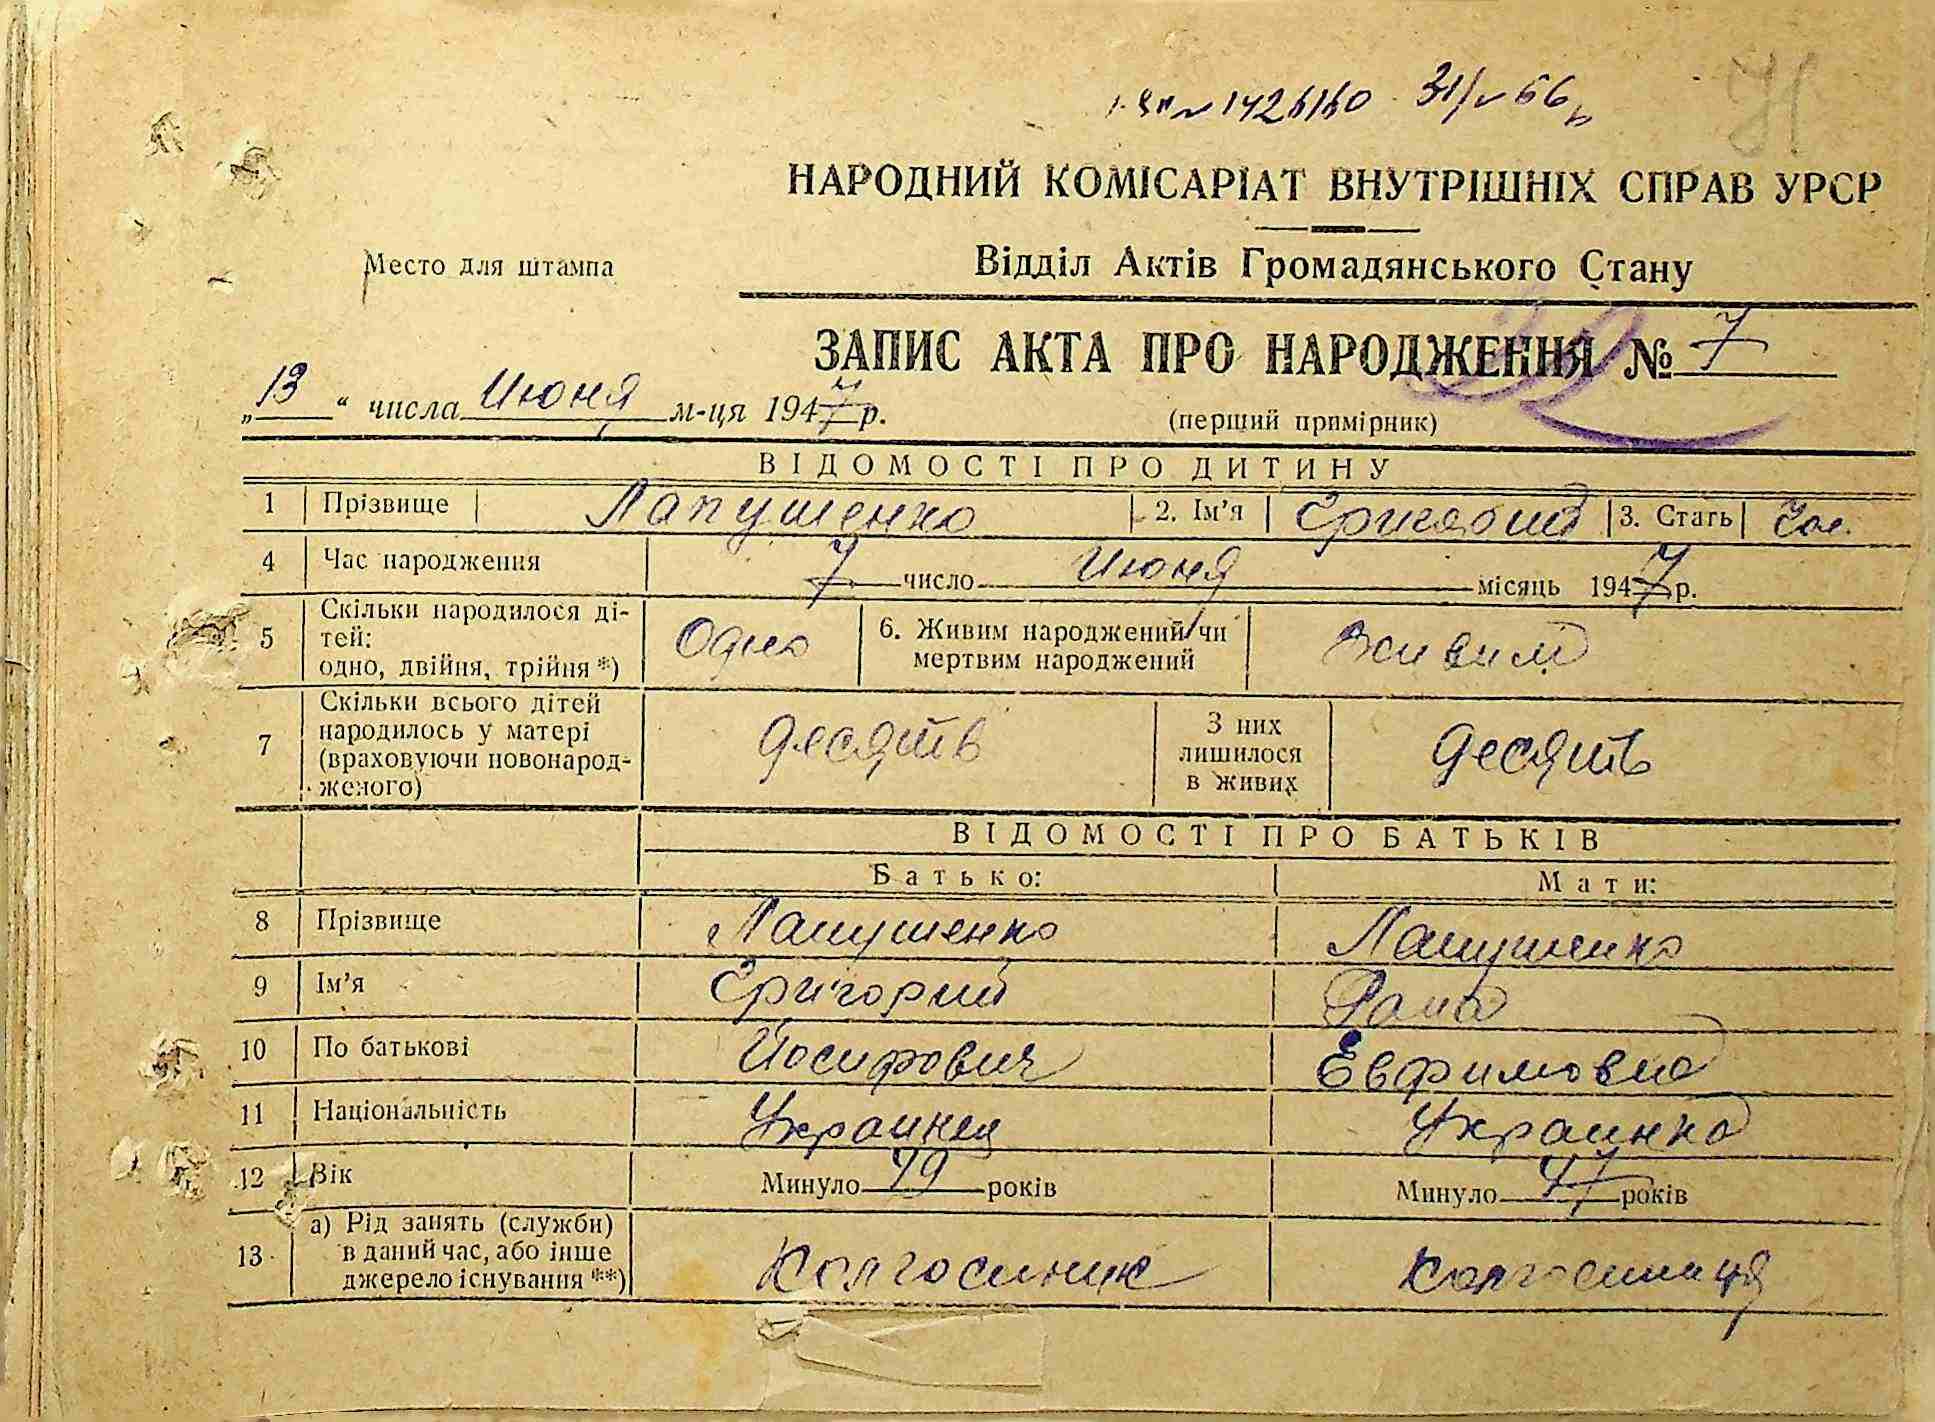 31/V 66
91
НАРОДНИЙ КОМІСАРІАТ ВНУТРІШНІХ СПРАВ УРСР
Место для штампа
Відділ Актів Громадянського Стану
ЗАПИС АКТА ПРО НАРОДЖЕННЯ № 7
„13“ числа Июня м-ця 1947 р.
(перший примірник)
ВІДОМОСТІ ПРО ДИТИНУ
1 Прізвище Лапушенко 2. Ім'я 3. Стать Чол.
4 Час народження 7 число Июня місяць 1947 р.
5 Скільки народилося ді-
тей:
одно, двійня, трійня *) Одно 6. Живим народжений чи
мертвим народжений Живим
7 Скільки всього дітей
народилось у матері
(враховуючи новонарод-
женого) десять З них
лишилося
в живих десять
ВІДОМОСТІ ПРО БАТЬКІВ
Батько: Мати:
8 Прізвище Лапушенко Лапушенко
9 Ім'я Григорий
10 По батькові Йосифович Евфимовна
11 Національність Украинец Украинка
12 Вік Минуло 49 років Минуло 47 років
13 а) Рід занять (служби)
в даний час, або інше
джерело існування **) Колгоспник колгоспниця